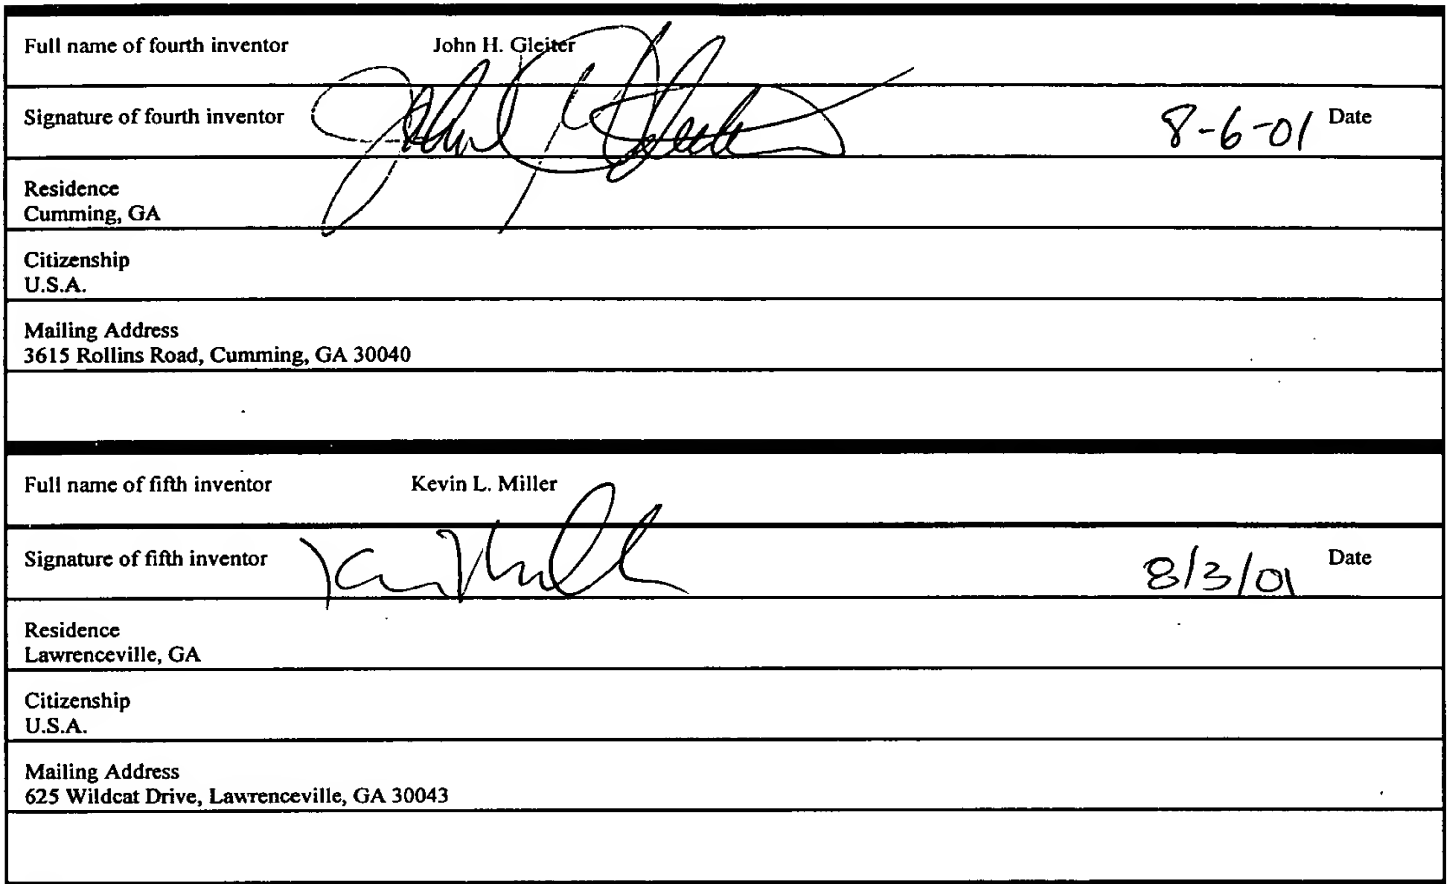 Full name of fourth inventor John H. Gleiter
Signature of fourth inventor John H. Gleiter 8-6-01 Date
Residence
Cumming, GA
Citizenship
U.S.A.
Mailing Address
3615 Rollins Road, Cumming, GA 30040
Full name of fifth inventor Kevin L. Miller
Signature of fifth inventor 8/3/01 Date
Residence
Lawrenceville, GA
Citizenship
U.S.A.
Mailing Address
625 Wildcat Drive, Lawrenceville, GA 30043